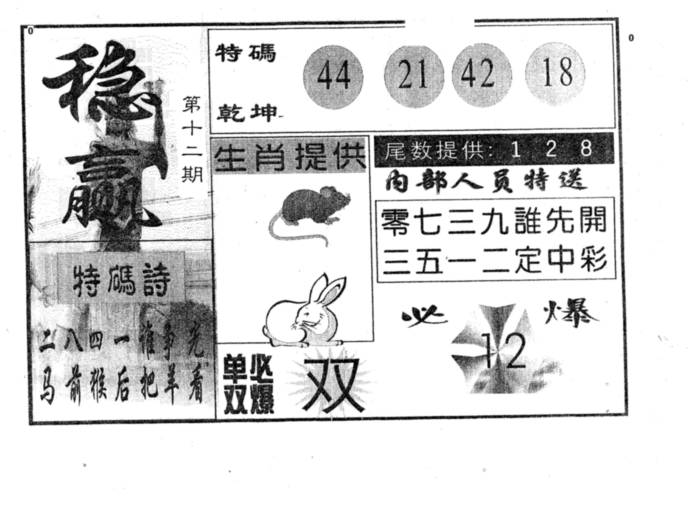 0
0
稳赢
第十二期
特碼
乾坤
44 21 42 18
生肖提供
尾数提供: 1 2 8
内部人员特送
零七三九誰先開
三五一二定中彩
特碼詩
二八四一谁争光
马前猴后把羊看
必爆
12
单双
必爆
双